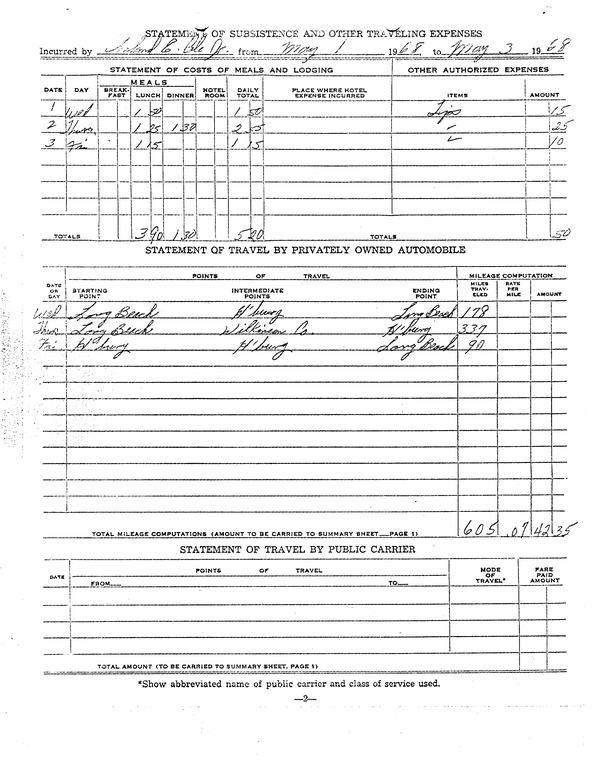 STATEMENT OF SUBSISTENCE AND OTHER TRAVELING EXPENSES
Incurred by from May 1 1968, to May 3 1968
STATEMENT OF COSTS OF MEALS AND LODGING OTHER AUTHORIZED EXPENSES
MEALS
DATE DAY BREAK-FAST LUNCH DINNER HOTEL ROOM DAILY TOTAL PLACE WHERE HOTEL EXPENSE INCURRED ITEMS AMOUNT
1 Wed 1 50 1 50 Tips 15
2 Thurs 1 25 1 30 2 55 " 25
3 Fri 1 15 1 15 " 10
TOTALS 3 90 1 30 5 20 TOTALS 50
STATEMENT OF TRAVEL BY PRIVATELY OWNED AUTOMOBILE
POINTS OF TRAVEL MILEAGE COMPUTATION
DATE OR DAY STARTING POINT INTERMEDIATE POINTS ENDING POINT MILES TRAV-ELED RATE PER MILE AMOUNT
Wed Long Beach H'burg Long Beach 178
Thur Long Beach Wilkinson Co. H'burg 337
Fri H'burg H'burg Long Beach 90
TOTAL MILEAGE COMPUTATIONS (AMOUNT TO BE CARRIED TO SUMMARY SHEET__PAGE 1) 605 .07 42 35
STATEMENT OF TRAVEL BY PUBLIC CARRIER
DATE POINTS OF TRAVEL MODE OF TRAVEL* FARE PAID AMOUNT
FROM__ TO__
TOTAL AMOUNT (TO BE CARRIED TO SUMMARY SHEET, PAGE 1)
*Show abbreviated name of public carrier and class of service used.
—2—